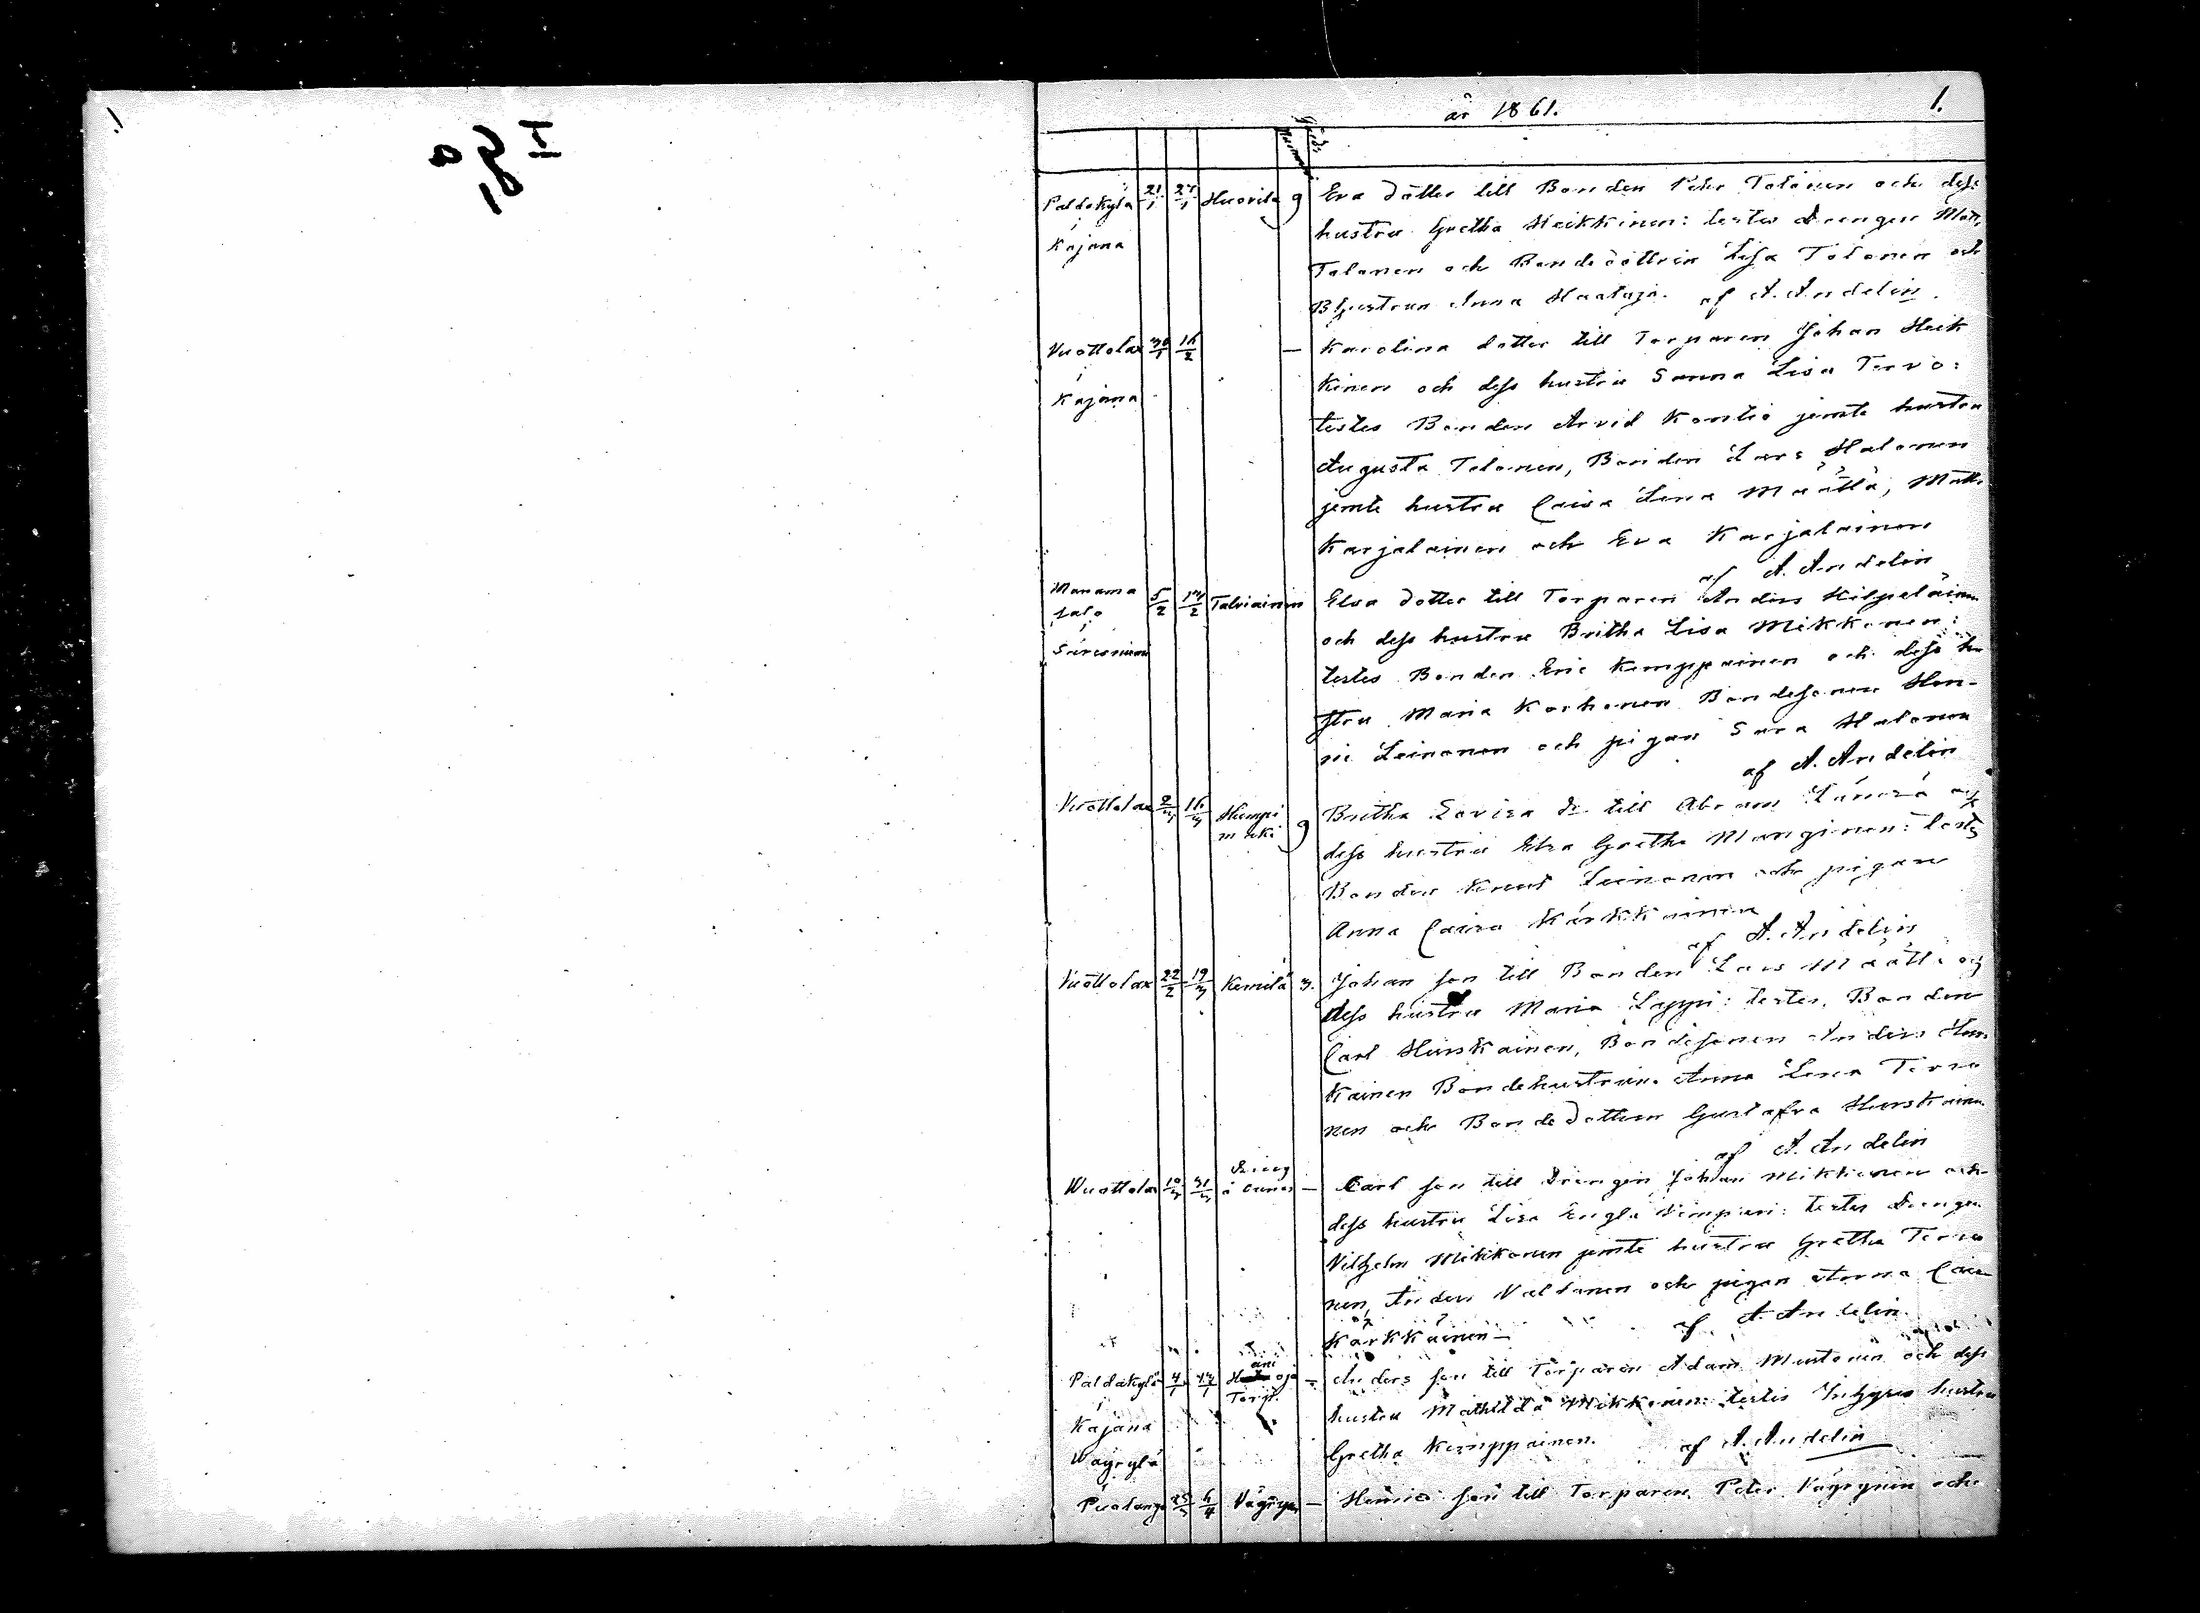 år 1861.
1.
Paldokylä 21/1 27/1 Huovila 9 Eva dotter till Bonden Petr Tolonen och dess
i hustru Gretha Heikkinen: testes Drengen Matts
Kajana
Tolonen och Bondedottren Lisa Tolonen och
BHustrun Anna Haataja. af A. Andelin.
Vuottolax 30/1 16/2 — Karolina dotter till Torparen Johan Heik
i kinen och dess hustru Sanna Lisa Tervo:
Kajana
testes Bonden Arvid Kontio jemte hustru
Augusta Tolonen, Bonden Lars Halonen
jemte hustru Caisa Lena Määttä, Matts
Karjalainen och Eva Karjalainen
af A. Andelin
Manama
salo 5/2 17/2 Talviainen Elsa dotter till Torparen Anders Kilpeläinen
i och dess hustru Britha Lisa Mikkonen:
Säresniemi
testes Bonden Eric Kemppainen och dess hu
stru Maria Korhonen Bondesonen Hen-
ric Leinonen och pigan Sara Halonen
af A. Andelin
Vuottolax 2/3 16/3 Humpi
mäki 9 Britha Lovisa dr till Abram och
dess hustru Elsa Gretha Manginen: testes
Bonden Knut Leinonen och pigan
Anna Caisa Kärkkäinen
af A. Andelin
Vuottolax 22/2 19/3 Kemilä 3. Johan son till Bonden Lars Määttä och
dess hustru Maria Lappi: testes, Bonden
Carl Hurskainen, Bondesonen Anders Hurs
kainen Bondehustrun Anna Lena Terva
nen och Bondedottren Gustafva Hurskainen
af A. Andelin
Wuottolax 10/3 31/3 dreng
å — Carl son till Drengen Johan Mikkonen och
dess hustru Lisa Engla Kempari: testes Drengen
Vilhelm Mikkonen jemte hustru Gretha Terva
nen, Anders Valtanen och pigan Anna Caisa
Kärkkäinen — af A. Andelin.
Paldakylä 4/1 17/1 oja
Torp. — Anders son till Torparen Adam Mustonen och dess
i hustru Mathilda Mikkonen: testes Inhyses hustru
Kajana
Gretha Kemppainen. af A. Andelin
Wäyrylä
Puolango 25/3 6/4 — Henric son till Torparen Peter Väyrynen och